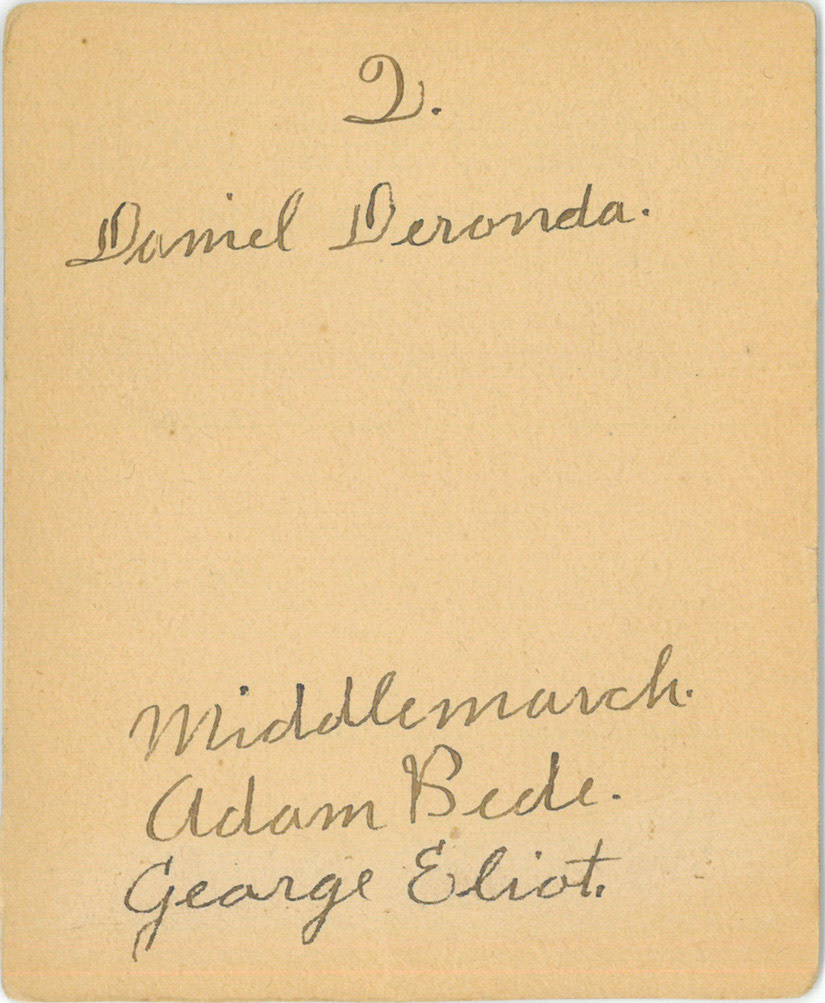 2.
Daniel Deronda.
Middlemarch.
Adam Bede.
George Eliot.